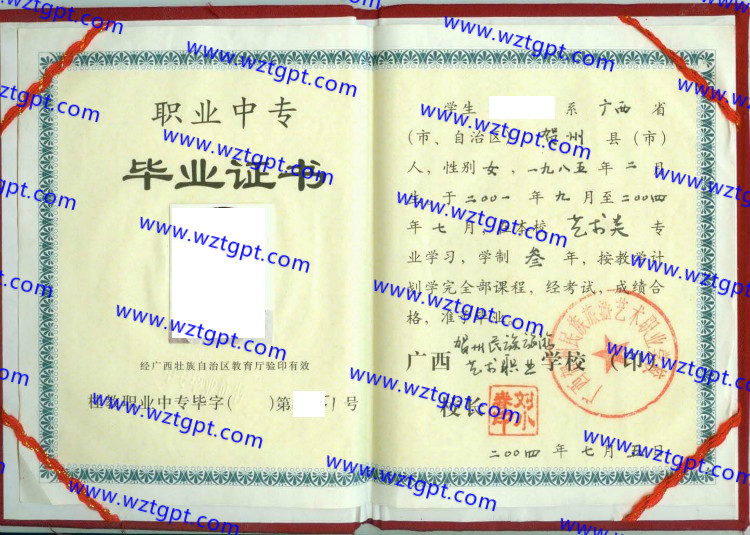 职业中专
毕业证书
经广西壮族自治区教育厅验印有效
桂教职业中专毕字( )第 1 号
学生 系 广西 省
(市、自治区) 贺州 县(市)
人，性别 女，一九八五 年 二 月
生，于 二〇〇一 年 九 月至 二〇〇四
年 七 月，在本校 艺术类 专
业学习，学制 叁 年，按教学计
划学完全部课程，经考试，成绩合
格，准予毕业。
贺州民族旅游
广西 艺术职业 学校 (印)
校长
二〇〇四 年 七 月 五 日
www.wztgpt.com